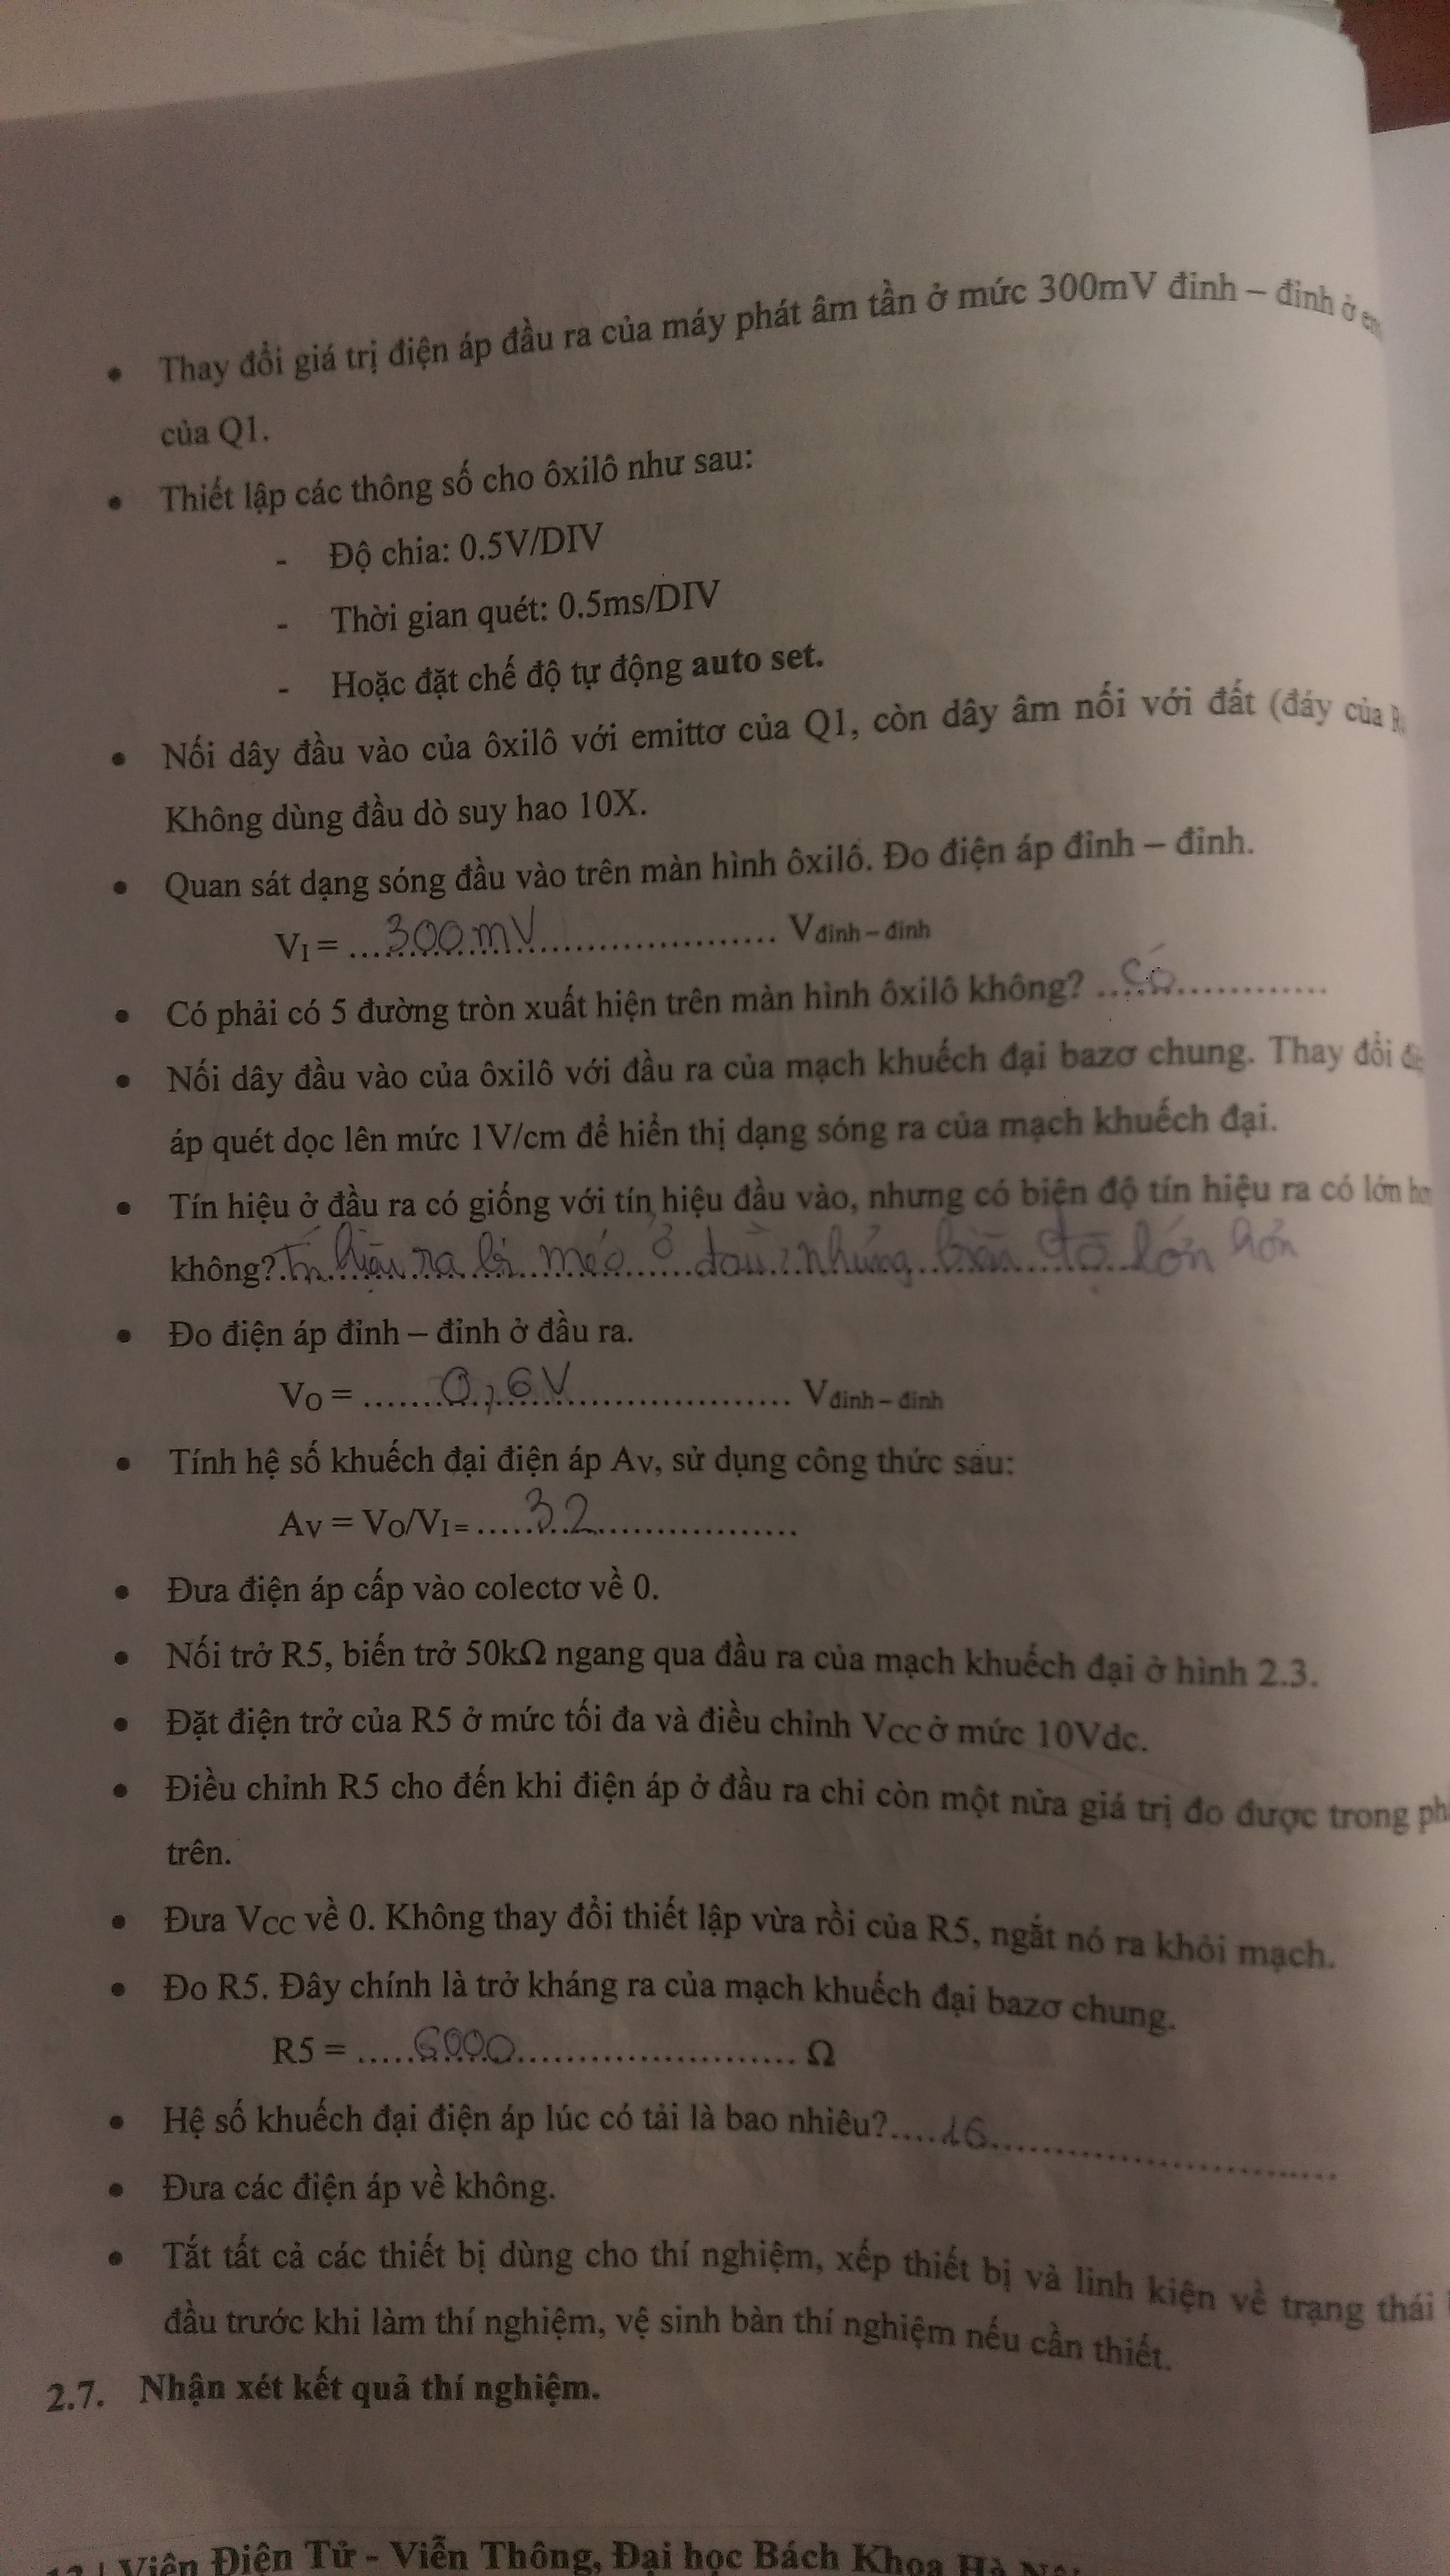 • Thay đổi giá trị điện áp đầu ra của máy phát âm tần ở mức 300mV đỉnh – đỉnh ở
của Q1.
• Thiết lập các thông số cho ôxilô như sau:
- Độ chia: 0.5V/DIV
- Thời gian quét: 0.5ms/DIV
- Hoặc đặt chế độ tự động auto set.
• Nối dây đầu vào của ôxilô với emittơ của Q1, còn dây âm nối với đất (đáy của
Không dùng đầu dò suy hao 10X.
• Quan sát dạng sóng đầu vào trên màn hình ôxilô. Đo điện áp đỉnh – đỉnh.
VI = ....300mV.................... Vđỉnh – đỉnh
• Có phải có 5 đường tròn xuất hiện trên màn hình ôxilô không? ....có............
• Nối dây đầu vào của ôxilô với đầu ra của mạch khuếch đại bazơ chung. Thay đổi
áp quét dọc lên mức 1V/cm để hiển thị dạng sóng ra của mạch khuếch đại.
• Tín hiệu ở đầu ra có giống với tín hiệu đầu vào, nhưng có biện độ tín hiệu ra có lớn
không? Tín hiệu ra bị méo ở đầu, nhưng biên độ lớn hơn
• Đo điện áp đỉnh – đỉnh ở đầu ra.
VO = ......0,6V.................... Vđỉnh – đỉnh
• Tính hệ số khuếch đại điện áp AV, sử dụng công thức sau:
AV = VO/VI = .....32....................
• Đưa điện áp cấp vào colectơ về 0.
• Nối trở R5, biến trở 50kΩ ngang qua đầu ra của mạch khuếch đại ở hình 2.3.
• Đặt điện trở của R5 ở mức tối đa và điều chỉnh VCC ở mức 10Vdc.
• Điều chỉnh R5 cho đến khi điện áp ở đầu ra chỉ còn một nửa giá trị đo được trong
trên.
• Đưa VCC về 0. Không thay đổi thiết lập vừa rồi của R5, ngắt nó ra khỏi mạch.
• Đo R5. Đây chính là trở kháng ra của mạch khuếch đại bazơ chung.
R5 = .....6000.................... Ω
• Hệ số khuếch đại điện áp lúc có tải là bao nhiêu?....16....................
• Đưa các điện áp về không.
• Tắt tất cả các thiết bị dùng cho thí nghiệm, xếp thiết bị và linh kiện về trạng thái
đầu trước khi làm thí nghiệm, vệ sinh bàn thí nghiệm nếu cần thiết.
2.7. Nhận xét kết quả thí nghiệm.
| Viện Điện Tử - Viễn Thông, Đại học Bách Khoa Hà